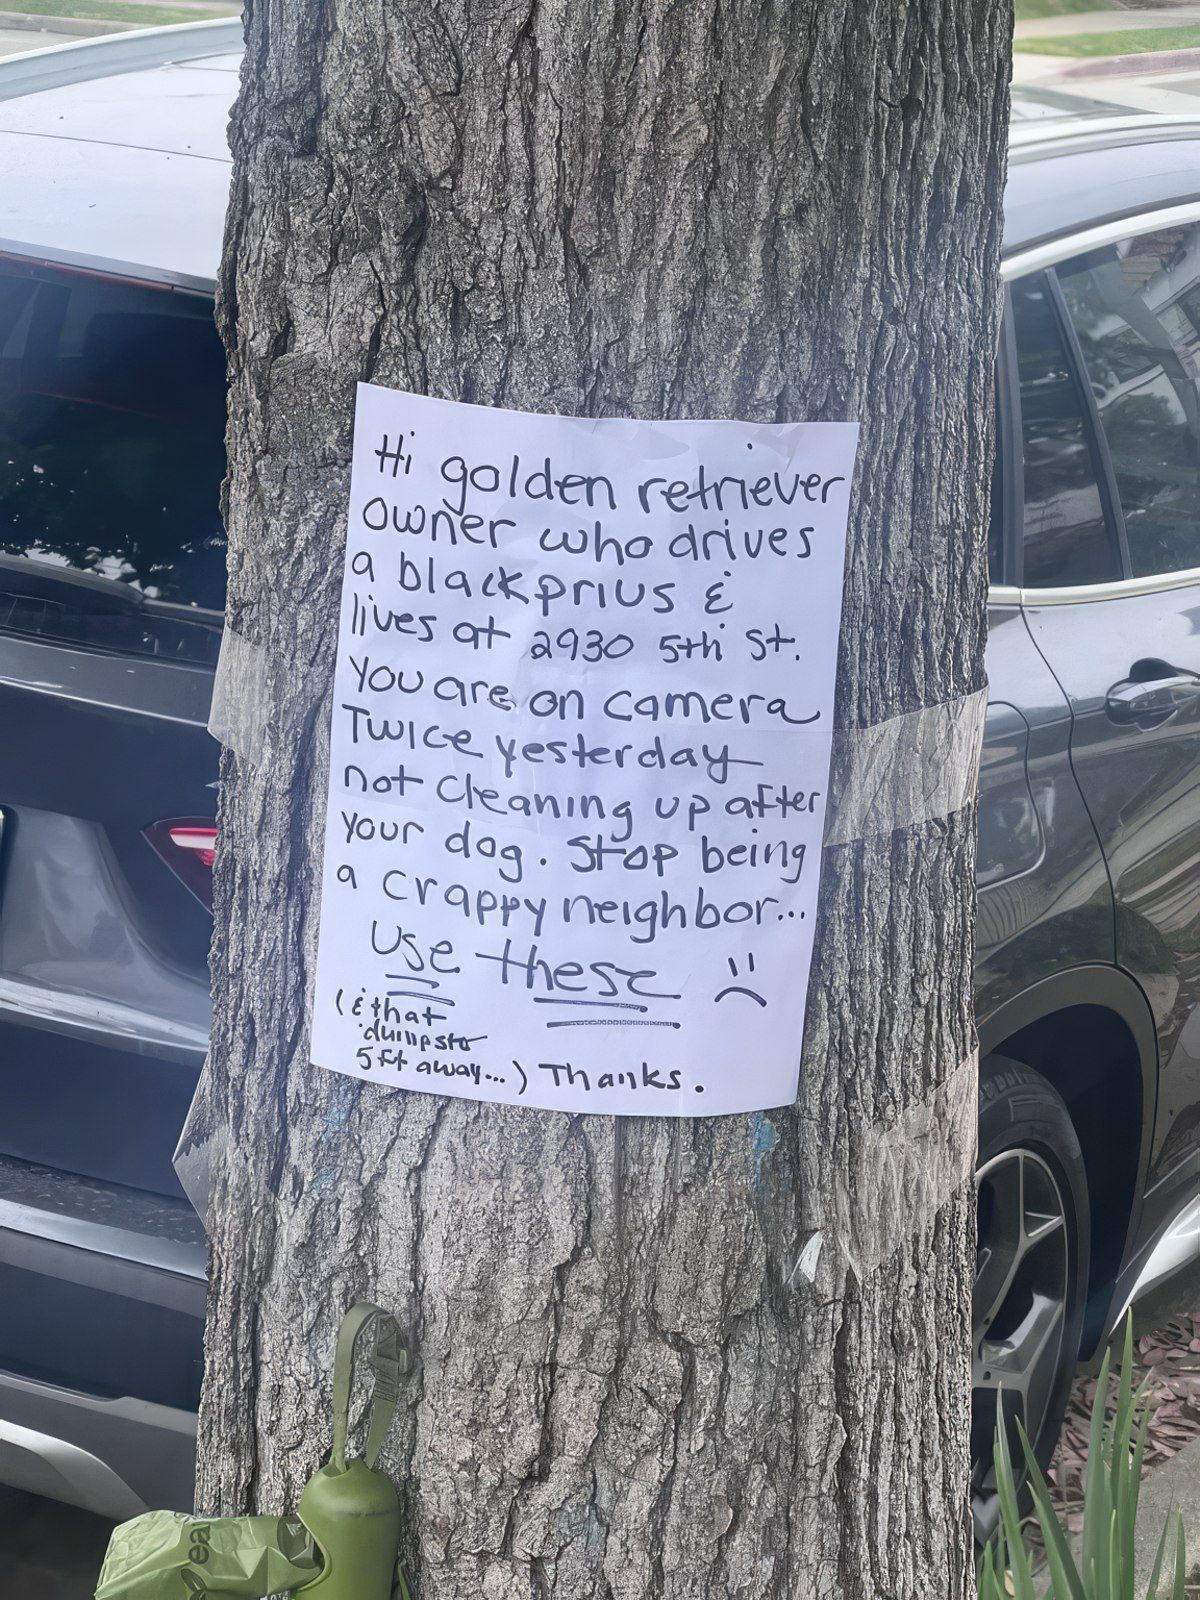 Hi golden retriever
owner who drives
a black prius &
lives at 2930 5th St.
You are on camera
Twice yesterday
not cleaning up after
your dog. Stop being
a crappy neighbor...
Use these
(& that
dumpster
5ft away...) Thanks.